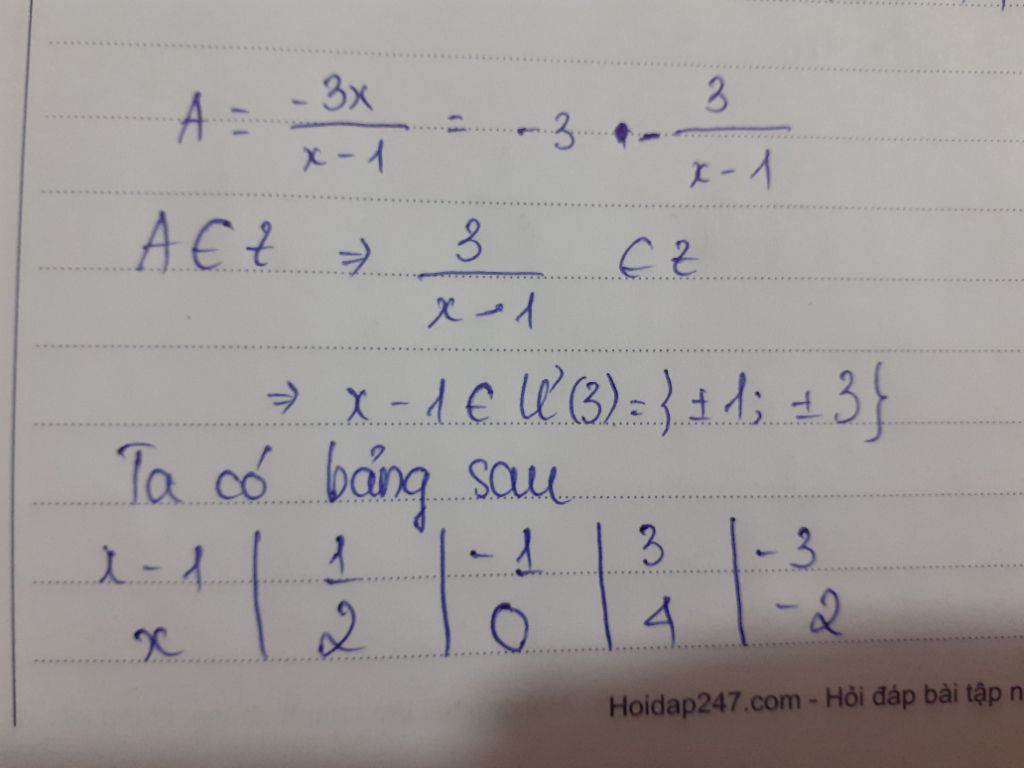 A = \frac{-3x}{x-1} = -3 - \frac{3}{x-1}
A ∈ Z ⇒ \frac{3}{x-1} ∈ Z
⇒ x - 1 ∈ Ư(3) = }±1; ±3}
Ta có bảng sau
x - 1 | 1 | -1 | 3 | -3
x | 2 | 0 | 4 | -2
Hoidap247.com - Hỏi đáp bài tập